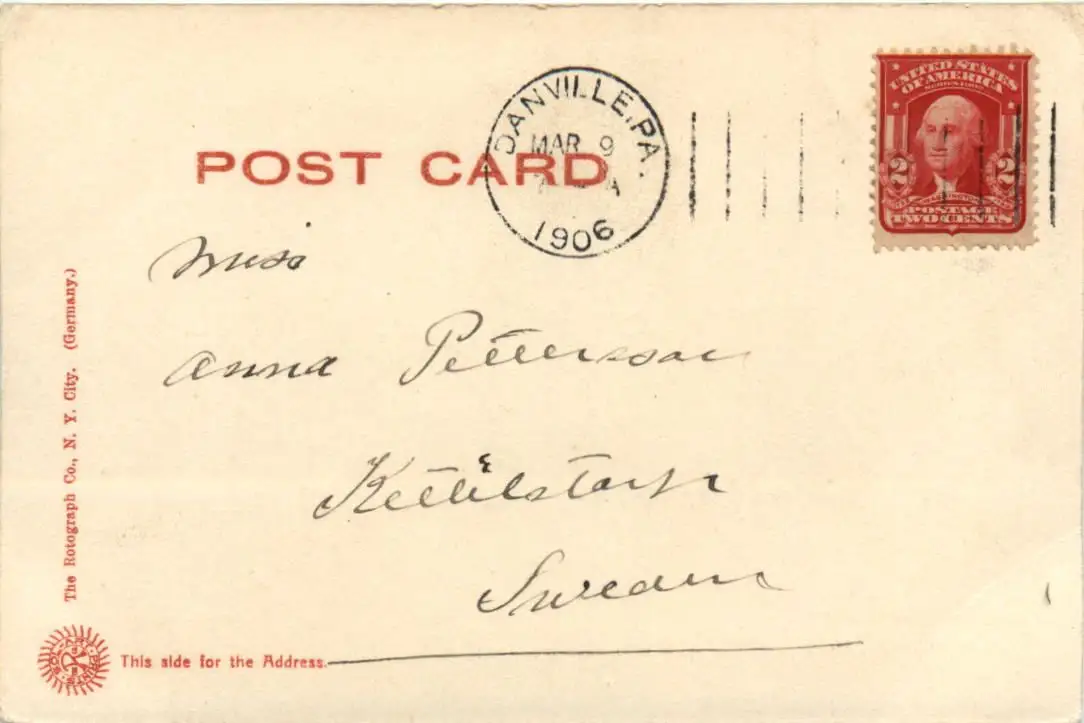 POST CARD
DANVILLE, PA.
MAR 9
A
1906
UNITED STATES
OF AMERICA
SERIES 1902
2 2
WASHINGTON
POSTAGE
TWO CENTS
Miss
Anna Petterson
Sweden
The Rotograph Co., N. Y. City. (Germany.)
SOL-ART PRINTS
This side for the Address.